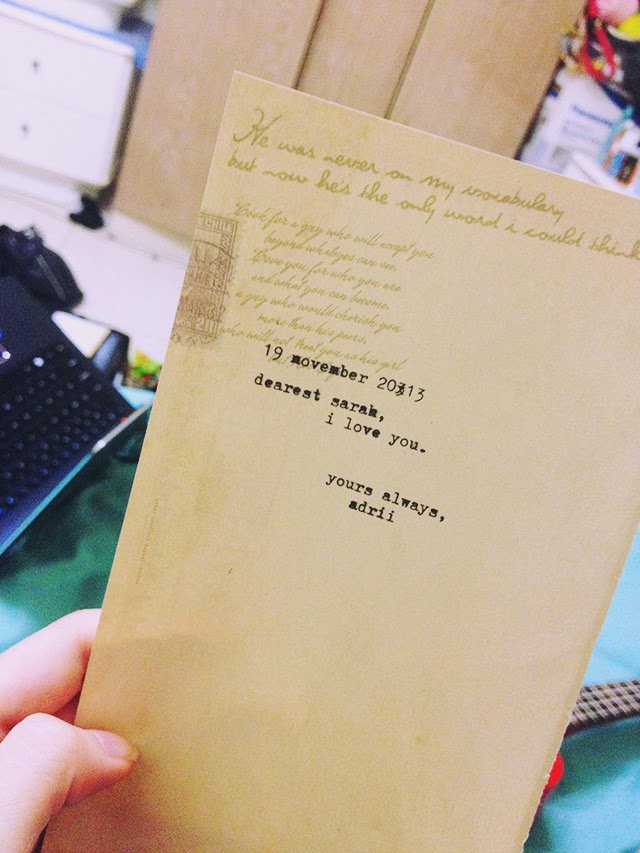 He was never on my vocabulary
but now he's the only word i could think
Look for a guy who will accept you
beyond whatyou can see.
Love you for who you are
and what you can become.
a guy who would cherish you
more than his peers,
who will not treat you as his girl
19 november 2013
dearest sarah,
i love you.
yours always,
adrii
Panasonic